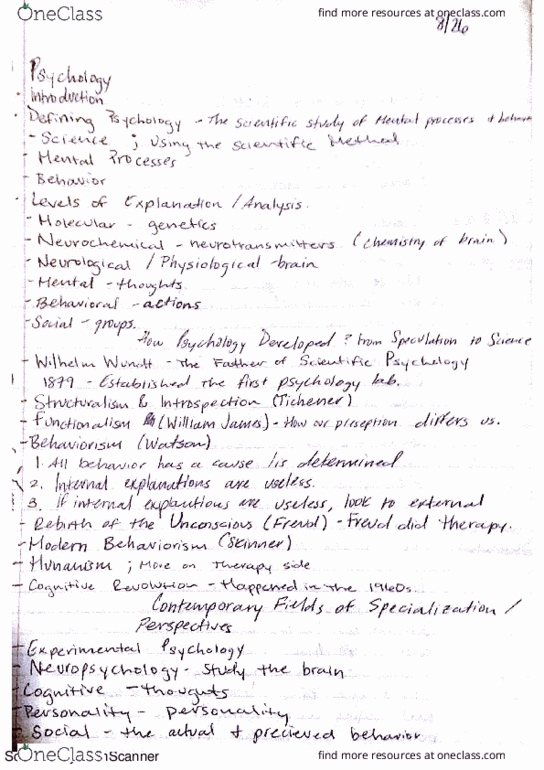 OneClass find more resources at oneclass.com
8/26
Psychology
· Introduction
· Defining Psychology - The Scientific study of Mental processes + behavior
- Science ; Using the Scientific Method
- Mental Processes
- Behavior
· Levels of Explanation / Analysis
- Molecular - genetics
- Neurochemical - neurotransmitters (chemistry of brain)
- Neurological / Physiological - brain
- Mental - thoughts
- Behavioral - actions
- Social - groups.
How Psychology Developed? From Speculation to Science
- Wilhelm Wundt - The Father of Scientific Psychology
1879 - Established the first psychology lab.
- Structuralism & Introspection (Tichener)
- Functionalism (William James) - How our preseption differs us.
- Behaviorism (Watson)
1. All behavior has a cause / is determined
2. Internal explanations are useless.
3. if internal explantions are useless, look to external
- Rebirth of the Unconscious (Freud) - Freud did therapy.
- Modern Behaviorism (Skinner)
- Humanism ; More on Therapy side
- Cognitive Revolution - Happened in the 1960s.
Contemporary Fields of Specialization /
Perspectives
- Experimental Psychology
- Neuropsychology - Study the brain
- Cognitive - thoughts
- Personality - personality
- Social - the actual + precieved behavior
OneClass Scanner find more resources at oneclass.com